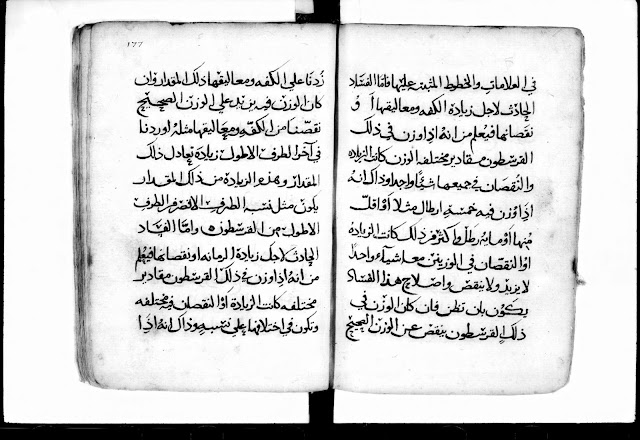 في العلامات والخطوط المثبتة عليها فاما الفساد
الحادث لاجل زيادة الكفه ومعاليقها او
نقصانها فيعلم من انه اذا وزن في ذلك
القرسطون مقادير مختلفه الوزن كانت الزياده
والنقصان في جميعها شيئا واحدا وذاك انه
اذا وزن فيه خمسة ارطال مثلا او اقل
منها او مايه رطل واكثر من ذلك كانت الزياده
او النقصان في الوزنين معا شيا واحدا
لا يزيد ولا ينقص واصلاح هذا الفساد
يكون بان تنظر فان كان الوزن في
ذلك القرسطون ينقص عن الوزن الصحيح
١٧٧
زدنا علي الكفه ومعاليقها ذلك المقدار وان
كان الوزن فيه يزيد علي الوزن الصحيح
نقصنا من الكفه ومعاليقها مثله او زدنا
في آخر الطرف الاطول زيادة تعادل ذلك
المقدار وهذه الزيادة من ذلك المقدار
يكون مثل نسبة الطرف الاقصر الطرف
الاطول من القرسطون واما الفساد
الحادث لاجل زيادة الرمانه او نقصانها فيعلم
من انه اذا وزن في ذلك القرسطون مقادير
مختلفه كانت الزيادة او النقصان فيه مختلفه
وتكون في اختلافها علي نسبه وذاك انه اذا